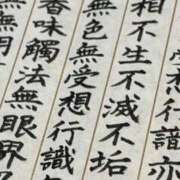 想行識亦
相不生不滅不垢
無色無受想行識無
香味觸法無眼界
無無明